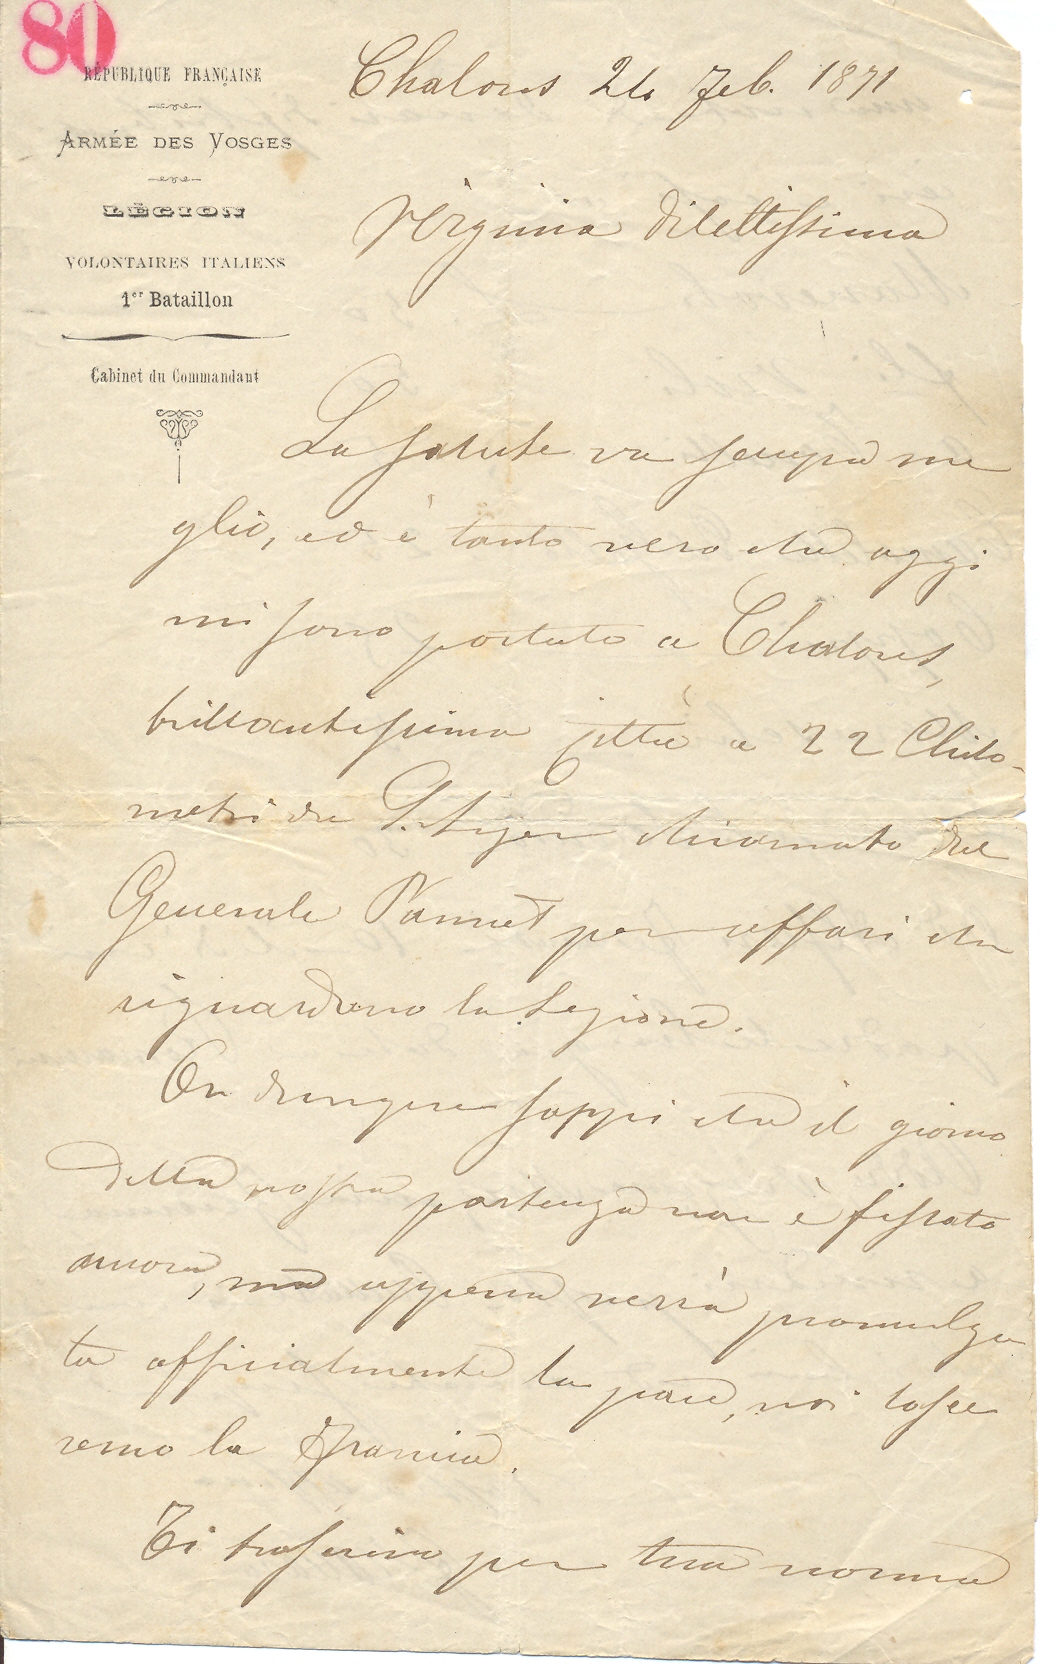 80
RÉPUBLIQUE FRANÇAISE
ARMÉE DES VOSGES
LÉGION
VOLONTAIRES ITALIENS
1er Bataillon
Cabinet du Commandant
Chalons Feb. 1871
Virginia dilettissima
La salute va sempre me
glio, ed è tanto vero che oggi
mi sono portato a Chalons,
brillantissima città a 22 Chilo-
metri da chiamato dal
Generale per affari che
riguardano la Legione.
On dunque sappi che il giorno
della nostra partenza non è fissato
ancora, ma appena verrà promulga
ta officialmente la pace, noi lasce
remo la Francia.
Ti trascrivo per tua norma